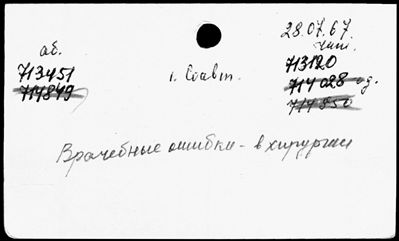 28.07.67.
аб. чит.
713451 713120
714849 1. Соавт. 714028
714850
Врачебные ошибки - в хирургии